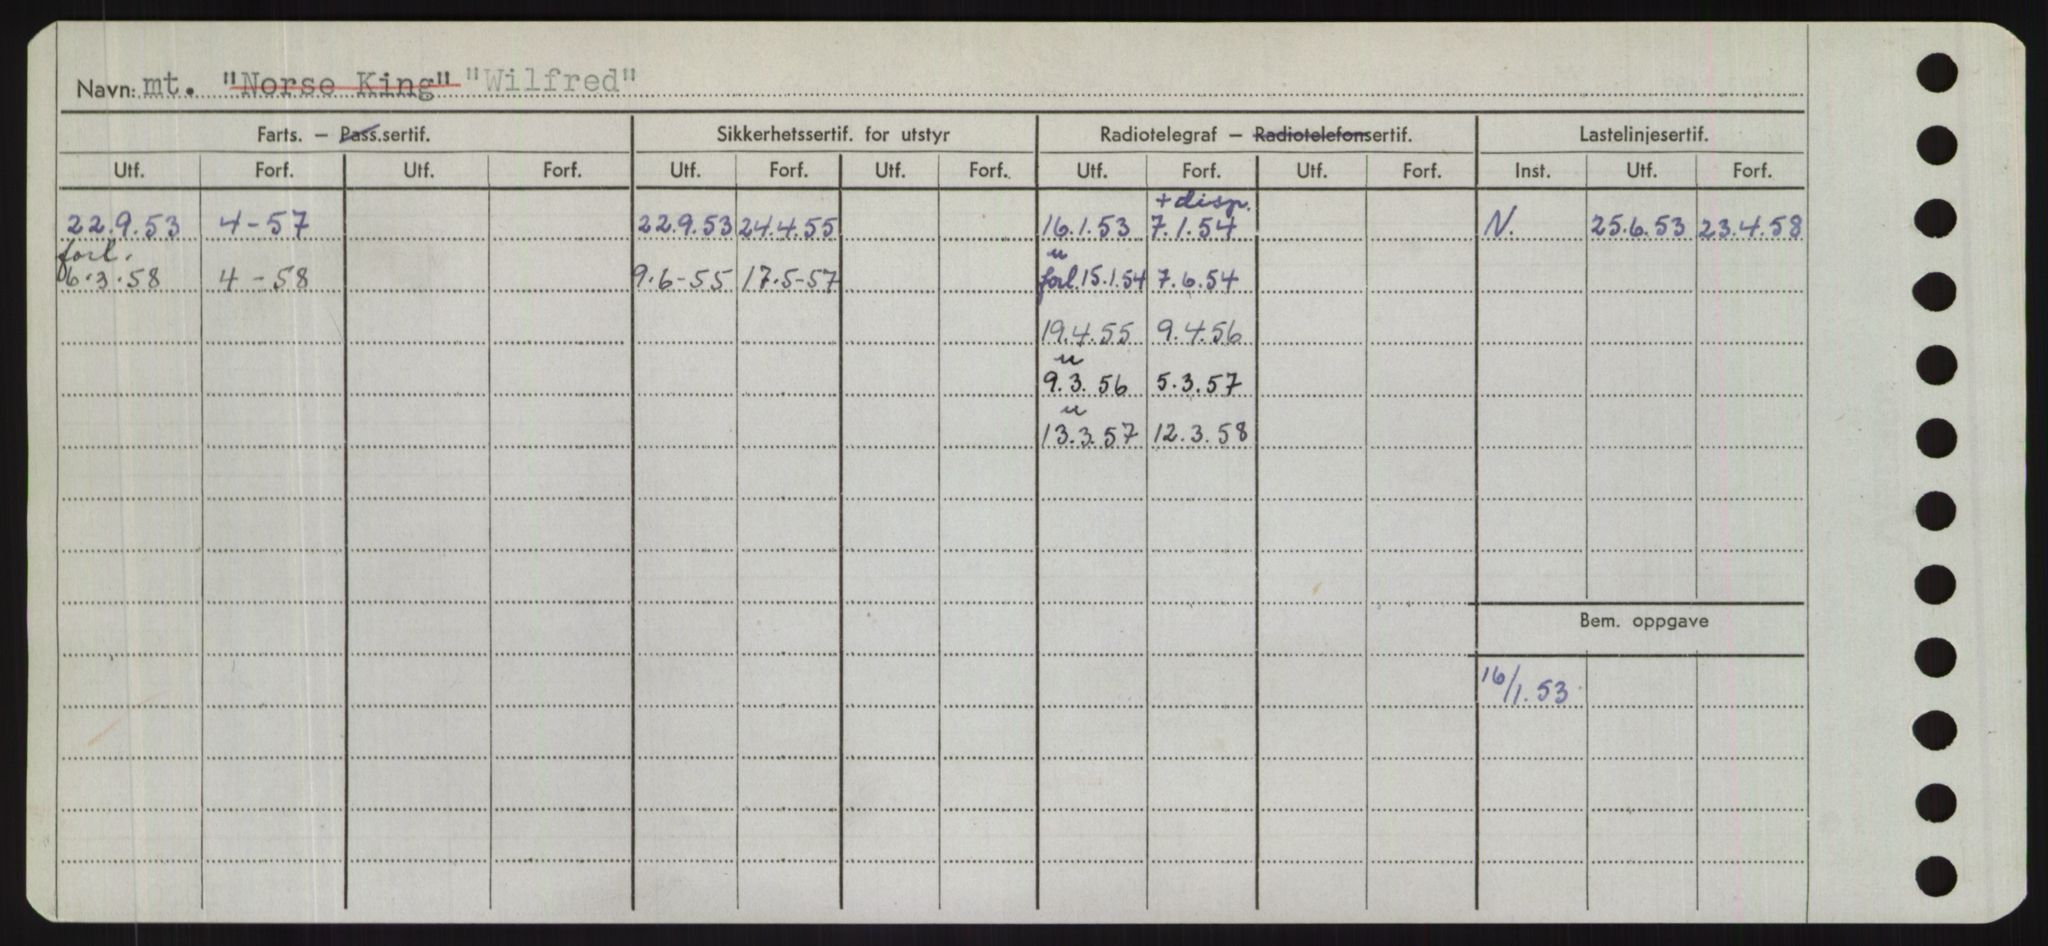 Navn: mt. "Norse King" "Wilfred"
Farts. – Pass.sertif. Sikkerhetssertif. for utstyr Radiotelegraf – Radiotelefonsertif. Lastelinjesertif.
Utf. Forf. Utf. Forf. Utf. Forf. Utf. Forf. Utf. Forf. Utf. Forf. Inst. Utf. Forf.
+ disp.
22.9.53 4-57 22.9.53 24.4.55 16.1.53 7.1.54 N. 25.6.53 23.4.58
forl. u
6.3.58 4-58 9.6-55 17.5-57 forl. 15.1.54 7.6.54
19.4.55 9.4.56
u
9.3.56 5.3.57
u
13.3.57 12.3.58
Bem. oppgave
16/1.53